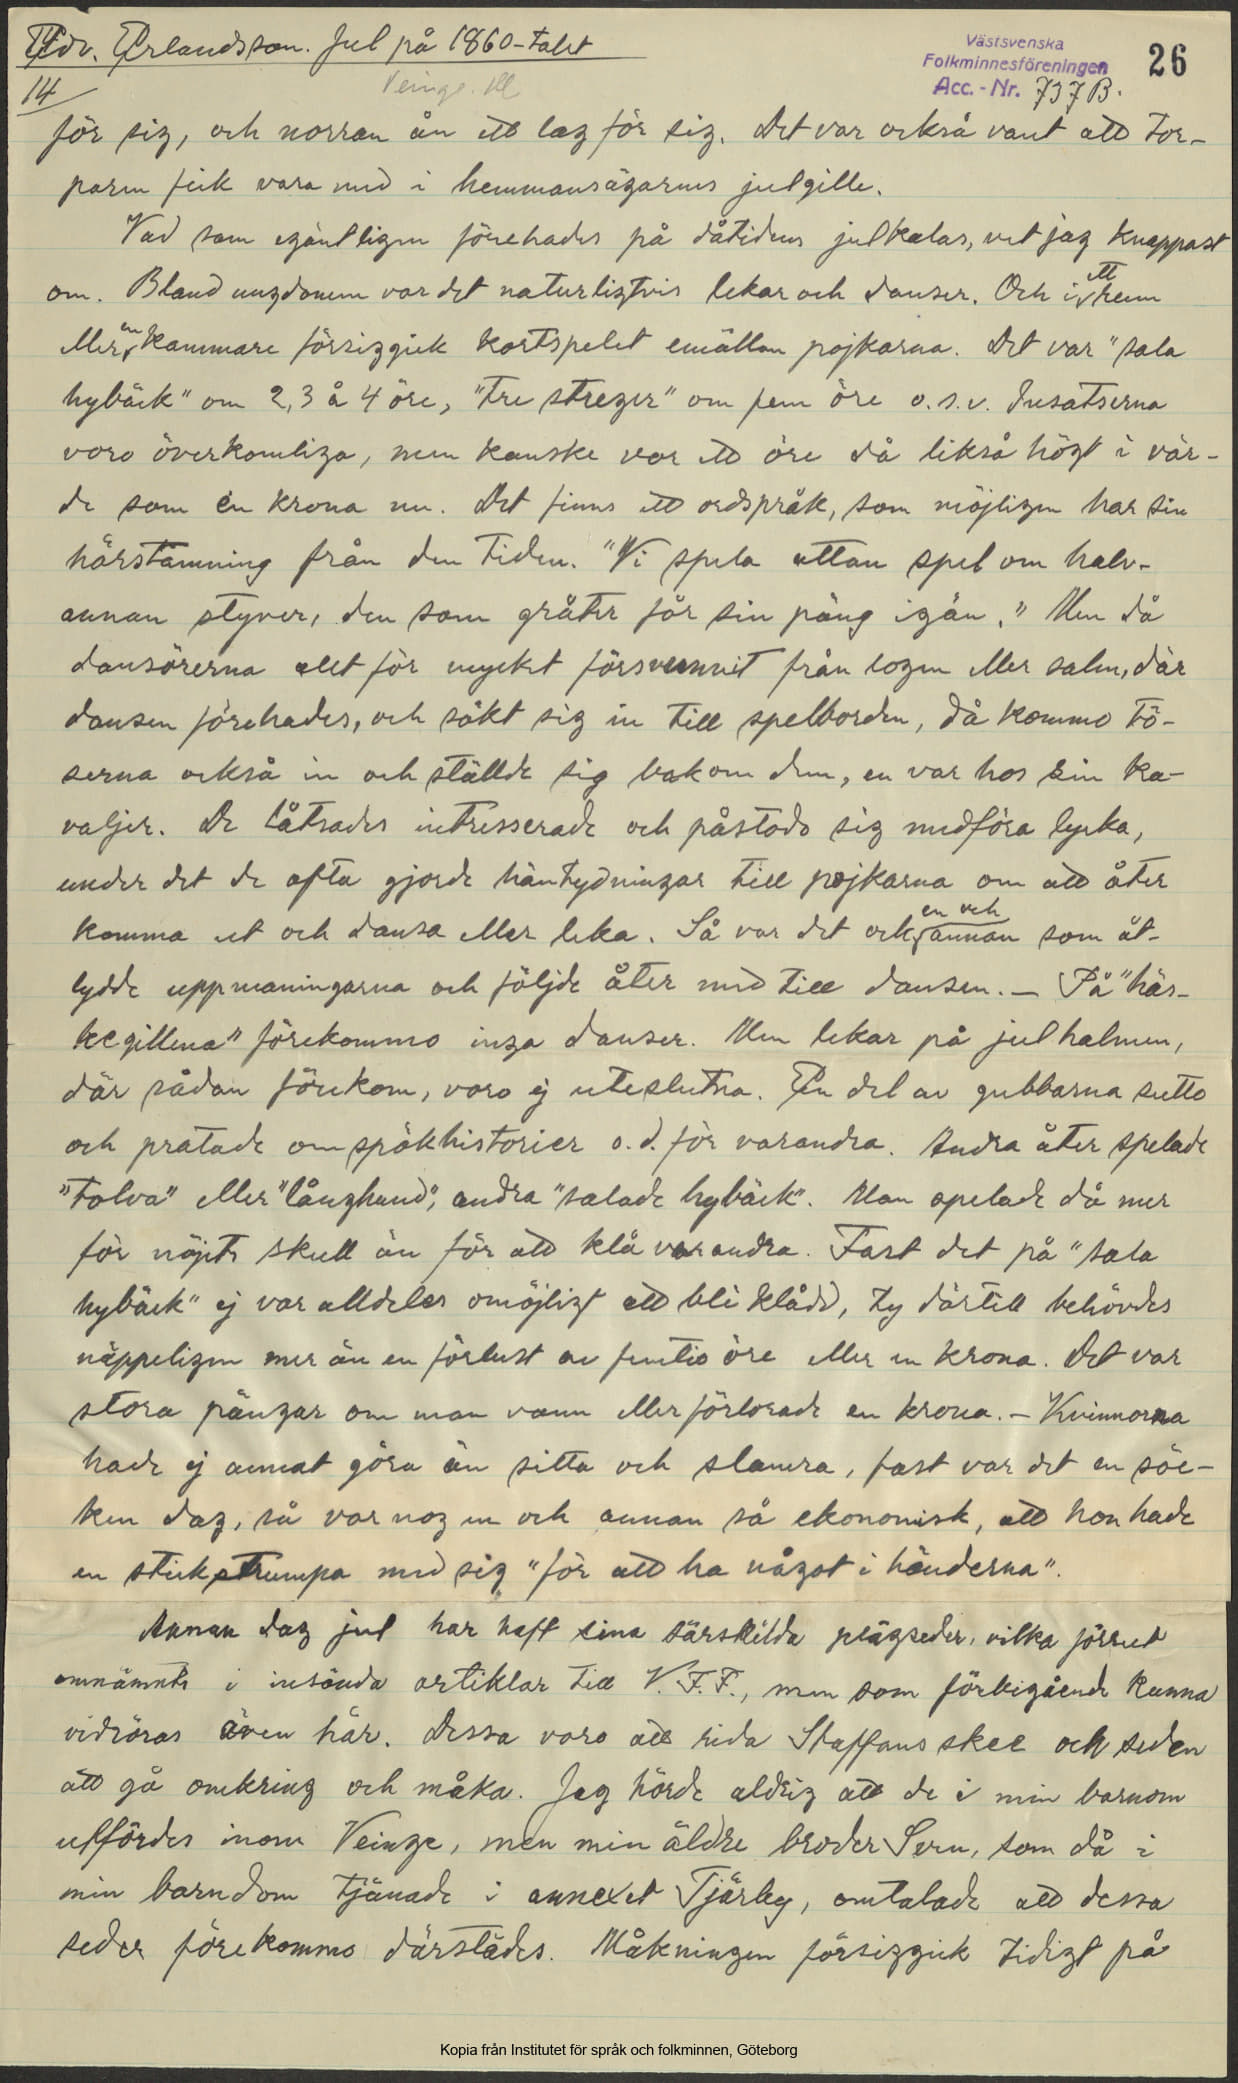 Edv. Erlandsson. Jul på 1860-talet
Västsvenska
Folkminnesföreningen
Acc.-Nr. 737 B.
26
14
Veinge. Hl
för sig, och norran ån ett lag för sig. Det var också vant att tor-
parna fick vara med i hemmansägarnes julgille.
Vad som egäntligen förehades på dåtidens julkalas, vet jag knappast
om. Bland ungdomen var det naturligtvis lekar och danser. Och i ett hem
eller en kammare försiggick kortspelet emällan pojkarna. Det var "sala
hybäck" om 2, 3 å 4 öre, "tre streger" om fem öre o.s.v. Insatserna
voro överkomliga, men kanske var ett öre då likså högt i vär-
de som en krona nu. Det finns ett ordspråk, som möjligen har sin
härstamning från den tiden. "Vi spela uttan spel om halv-
annan styver, den som gråter får sin päng igän." Men då
dansörerna allt för mycket försvunnit från logen eller salen, där
dansen förehades, och sökt sig in till spelborden, då kommo tö-
serna också in och ställde sig bakom dem, en var hos sin ka-
valjer. De låtsades intresserade och påstodo sig medföra lycka,
under det de ofta gjorde häntydningar till pojkarna om att åter
komma ut och dansa eller leka. Så var det ock en och annan som åt-
lydde uppmaningarna och följde åter med till dansen. – På "här-
kegillena" förekommo inga danser. Men lekar på julhalmen,
där sådan förekom, voro ej uteslutna. En del av gubbarna sutto
och pratade om spökhistorier o.d. för varandra. Andra åter spelade
"tolva" eller "långhund", andra "salade hybäck". Man spelade då mer
för nöjets skull än för att klå varandra. Fast det på "sala
hybäck" ej var alldeles omöjligt att bli klådd, ty därtill behövdes
näppeligen mer än en förlust av femtio öre eller en krona. Det var
stora pängar om man vann eller förlorade en krona. – Kvinnorna
hade ej annat göra än sitta och slamra, fast var det en söc-
ken dag, så var nog en och annan så ekonomisk, att hon hade
en stickstrumpa med sig "för att ha något i händerna".
Annan dag jul har haft sina särskilda plägseder, vilka förrut
omnämnts i insända artiklar till V.F.F., men som förbigående kunna
vidröras även här. Dessa voro att rida Staffans skee och seden
att gå omkring och måka. Jag hörde aldrig att de i min barnom
utfördes inom Veinge, men min äldre broder Sven, som då i
min barndom tjänade i annexet Tjärby, omtalade att dessa
seder förekommo därstädes. Måkningen försiggick tidigt på
Kopia från Institutet för språk och folkminnen, Göteborg